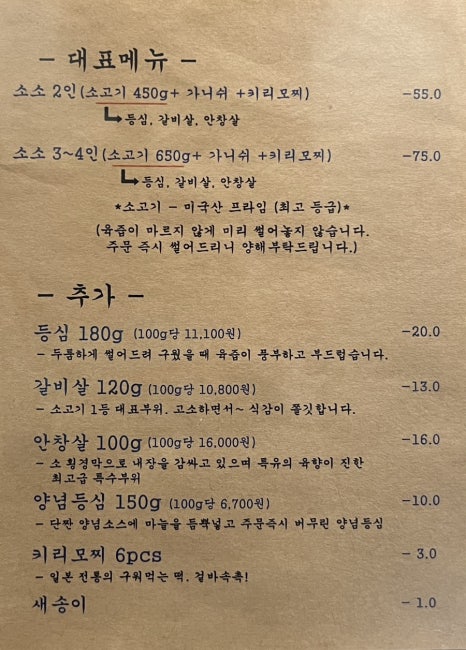 - 대표메뉴 -
소소 2인(소고기 450g+ 가니쉬 +키리모찌) -55.0
등심, 갈비살, 안창살
소소 3~4인(소고기 650g+ 가니쉬 +키리모찌) -75.0
등심, 갈비살, 안창살
*소고기 - 미국산 프라임 (최고 등급)*
(육즙이 마르지 않게 미리 썰어놓지 않습니다.
주문 즉시 썰어드리니 양해부탁드립니다.)
- 추가 -
등심 180g (100g당 11,100원) -20.0
- 두툼하게 썰어드려 구웠을 때 육즙이 풍부하고 부드럽습니다.
갈비살 120g (100g당 10,800원) -13.0
- 소고기 1등 대표부위. 고소하면서~ 식감이 쫄깃합니다.
안창살 100g (100g당 16,000원) -16.0
- 소 횡경막으로 내장을 감싸고 있으며 특유의 육향이 진한
최고급 특수부위
양념등심 150g (100g당 6,700원) -10.0
- 단짠 양념소스에 마늘을 듬뿍넣고 주문즉시 버무린 양념등심
키리모찌 6pcs - 3.0
- 일본 전통의 구워먹는 떡. 겉바속촉!
새송이 - 1.0